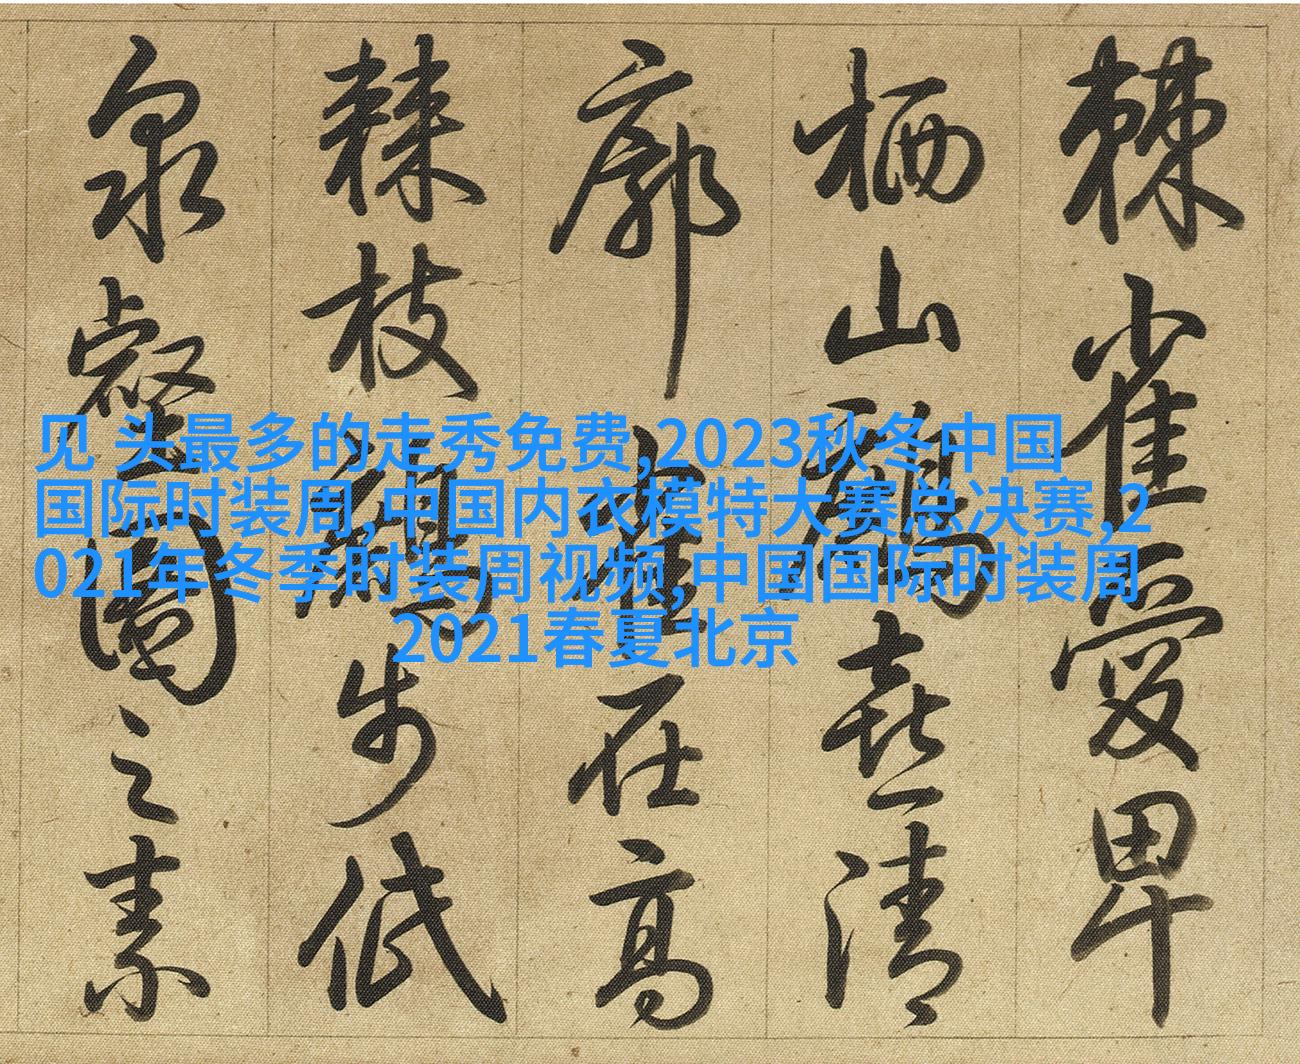 棘雀爱卑
栖山鹇喜清
廓雀在高
棘枝鹇步低
泉壑图之素
见 头最多的走秀免费,2023秋冬中国
国际时装周,中国内衣模特大赛总决赛,2
021年冬季时装周视频,中国国际时装周
2021春夏北京